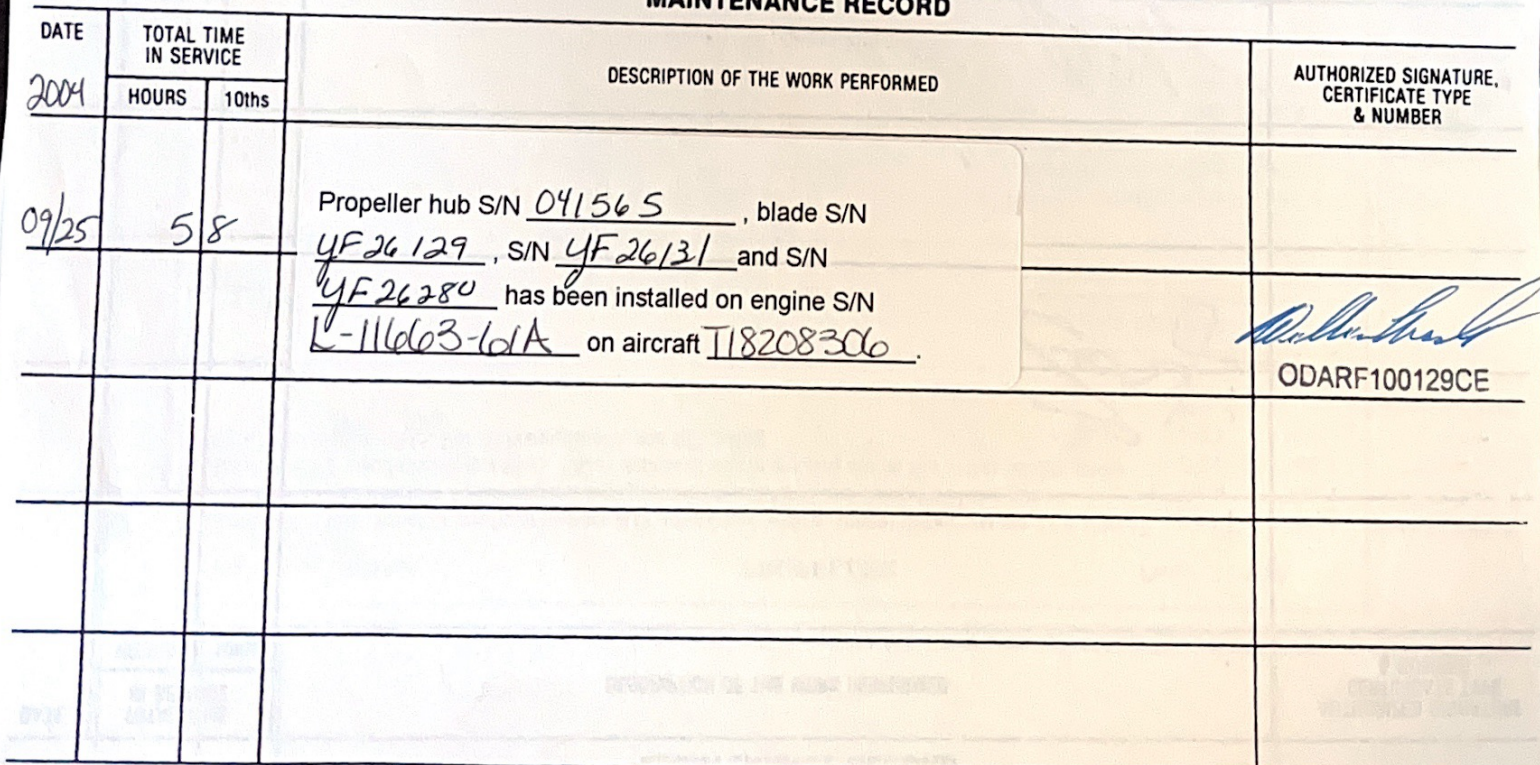 MAINTENANCE RECORD
DATE
2004
TOTAL TIME
IN SERVICE
HOURS
10ths
DESCRIPTION OF THE WORK PERFORMED
AUTHORIZED SIGNATURE,
CERTIFICATE TYPE
& NUMBER
09/25
5
8
Propeller hub S/N 04156 S, blade S/N
YF26129, S/N YF26131 and S/N
YF26280 has been installed on engine S/N
L-11663-61A on aircraft T18208306.
ODARF100129CE